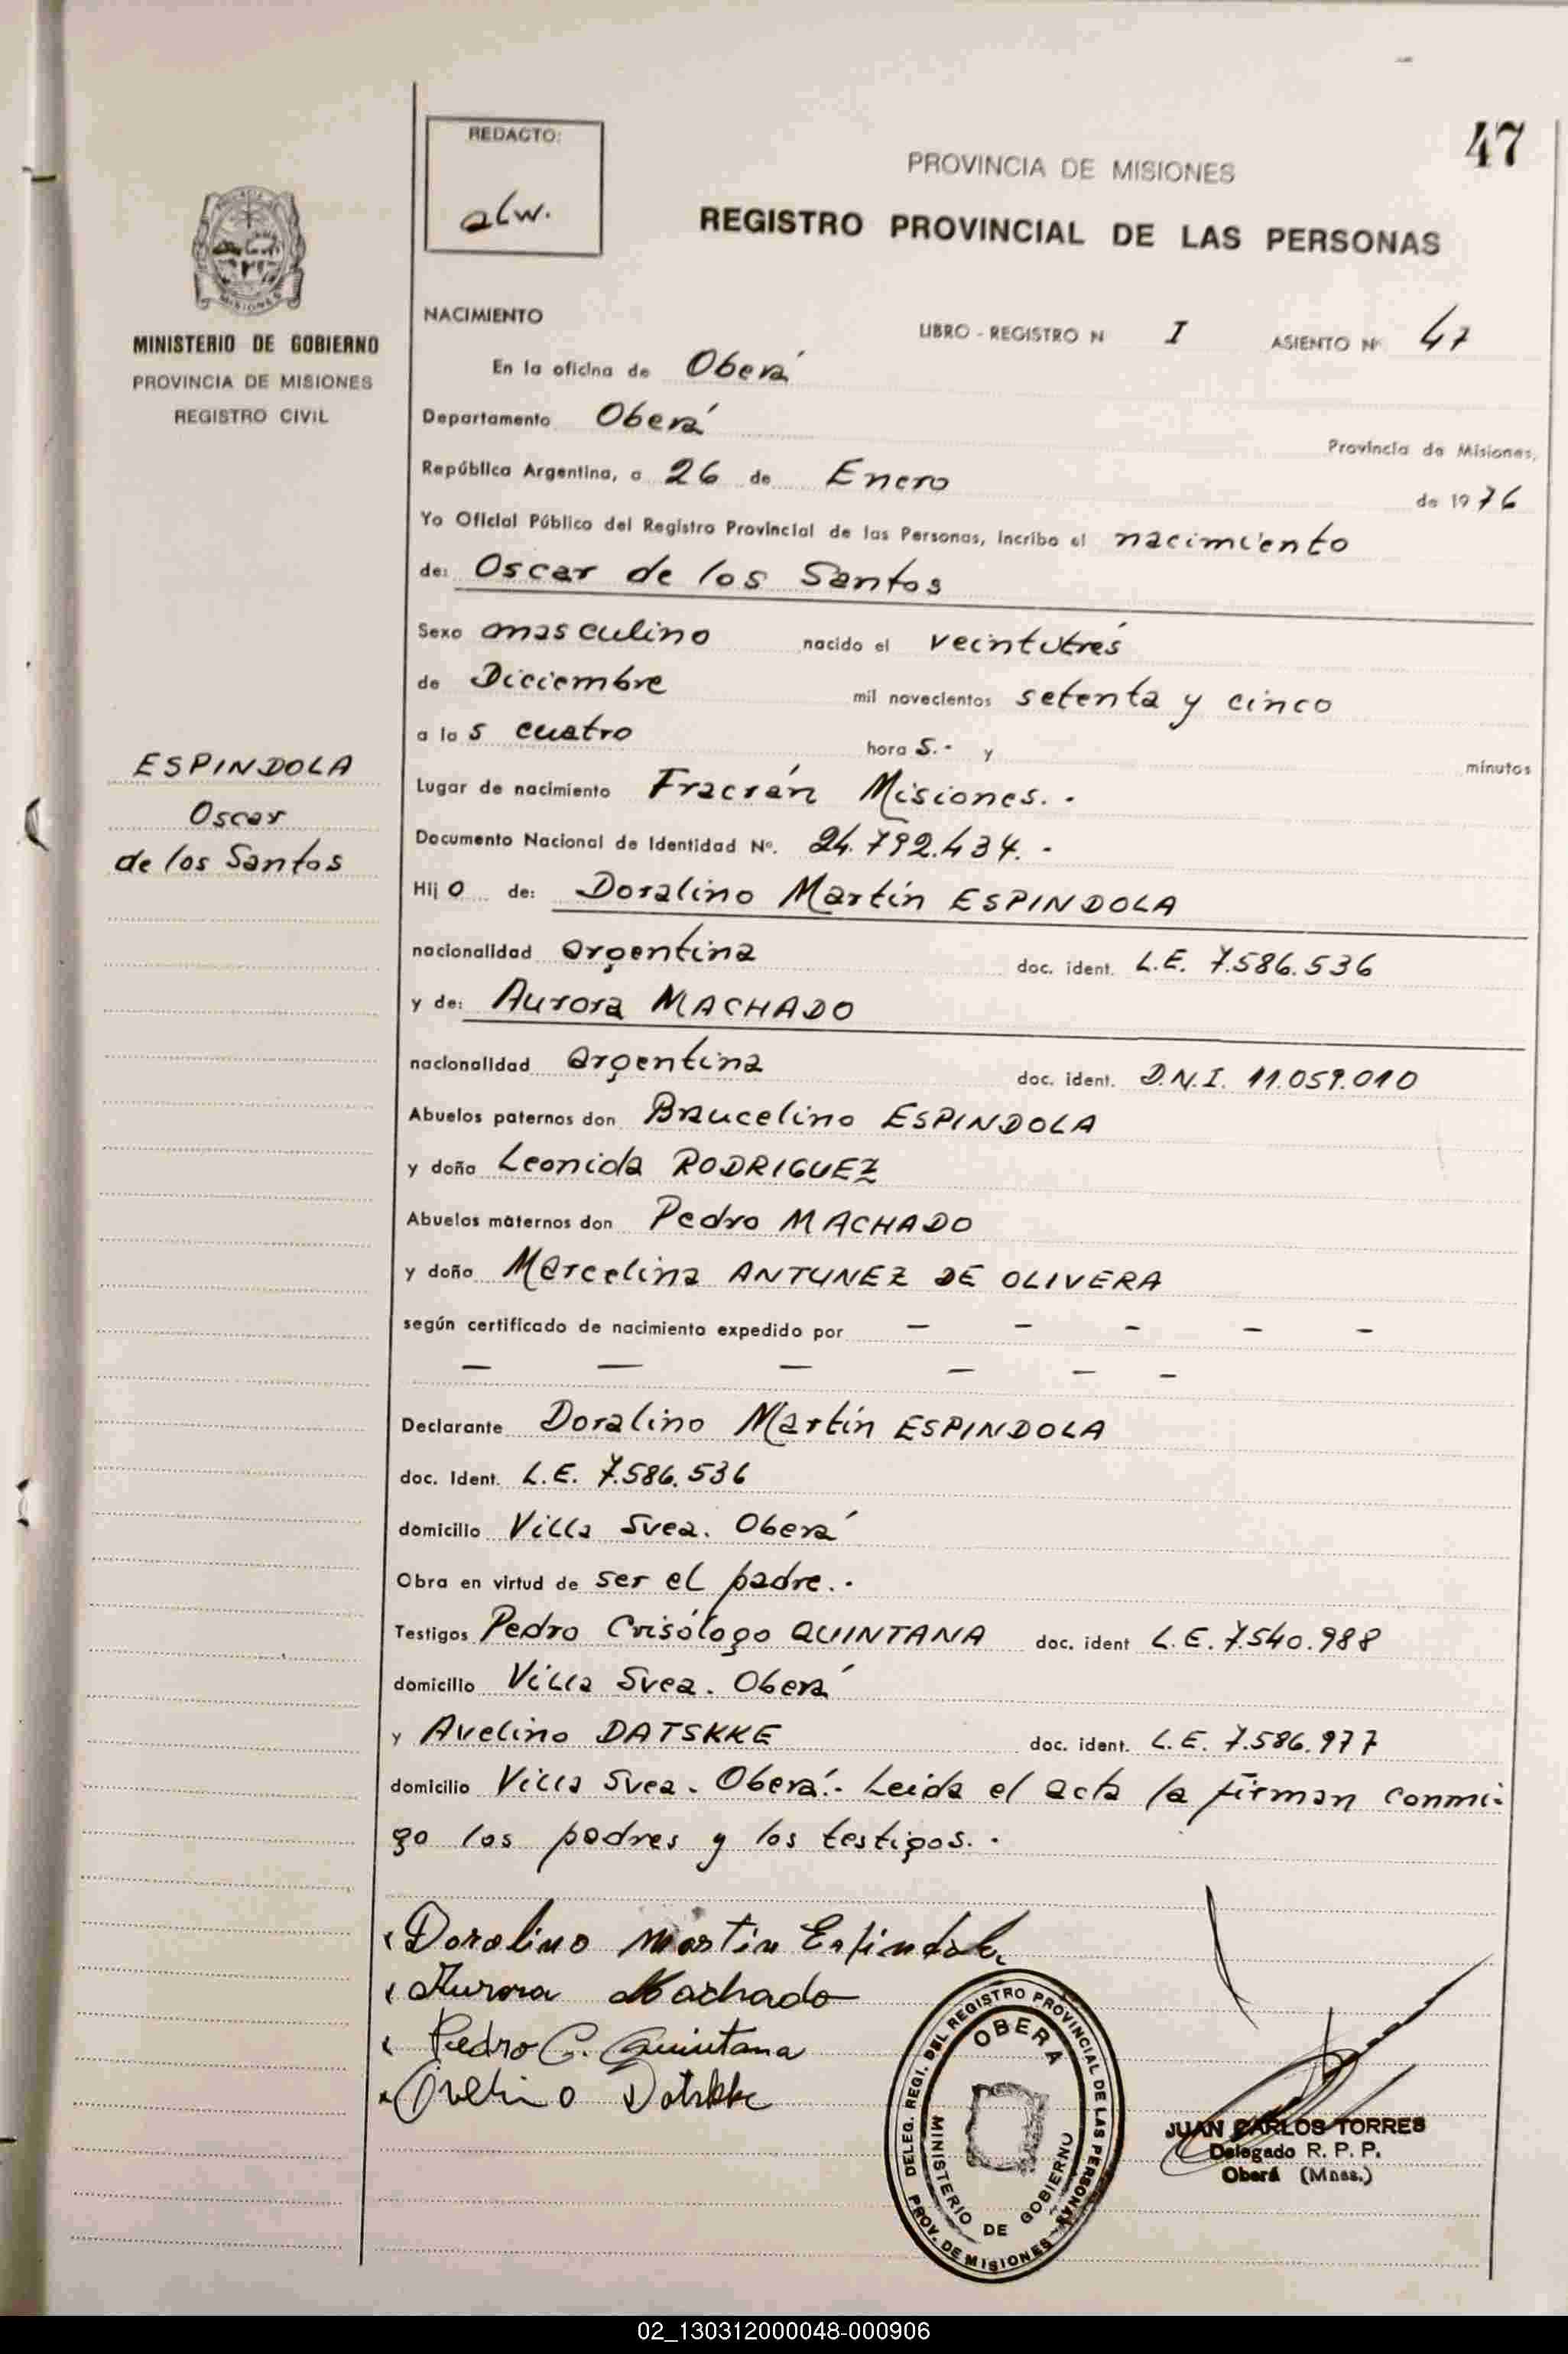 47
REDACTO:
alw.
PROVINCIA DE MISIONES
REGISTRO PROVINCIAL DE LAS PERSONAS
MINISTERIO DE GOBIERNO
PROVINCIA DE MISIONES
REGISTRO CIVIL
NACIMIENTO
LIBRO - REGISTRO N I ASIENTO Nº 47
En la oficina de Oberá
Departamento Oberá
Provincia de Misiones,
República Argentina, a 26 de Enero de 1976
Yo Oficial Público del Registro Provincial de las Personas, incribo el nacimiento
de: Oscar de los Santos
Sexo masculino nacido el veintitrés
de Diciembre mil novecientos setenta y cinco
a las cuatro hora s.- y minutos
ESPINDOLA
Oscar
de los Santos
Lugar de nacimiento Fracrán Misiones.-
Documento Nacional de Identidad Nº. 24.792.434.-
Hijo de: Doralino Martín ESPINDOLA
nacionalidad argentina doc. ident. L.E. 7.586.536
y de: Aurora MACHADO
nacionalidad argentina doc. ident. D.N.I. 11.059.010
Abuelos paternos don Braucelino ESPINDOLA
y doña Leonida RODRIGUEZ
Abuelos maternos don Pedro MACHADO
y doña Marcelina ANTUNEZ DE OLIVERA
según certificado de nacimiento expedido por — — — — —
— — — — — —
Declarante Doralino Martín ESPINDOLA
doc. Ident. L.E. 7.586.536
domicilio Villa Svea. Oberá
Obra en virtud de ser el padre.-
Testigos Pedro Crisólogo QUINTANA doc. ident L.E. 7.540.988
domicilio Villa Svea. Oberá
y Avelino DATSKKE doc. ident. L.E. 7.586.977
domicilio Villa Svea. Oberá.- Leida el acta la firman conmi-
go los padres y los testigos.-
Doralino Martin Espindola
Aurora Machado
Pedro C. Quintana
Avelino Datskke
DELEG. REGI. DEL REGISTRO PROVINCIAL DE LAS PERSONAS
OBERA
MINISTERIO DE GOBIERNO
PROV. DE MISIONES
JUAN CARLOS TORRES
Delegado R. P. P.
Oberá (Mnes.)
02_130312000048-000906